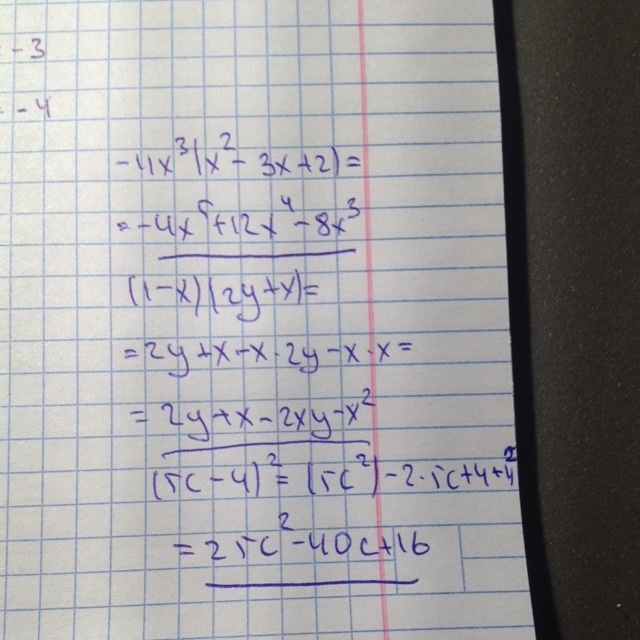 = -3
= -4
-4x³(x² - 3x+2)=
= -4x⁵+12x⁴-8x³
(1-x)(2y+x)=
=2y+x-x·2y-x·x=
= 2y+x-2xy-x²
(5c-4)²=(5c²)-2·5c+4+4²
= 25c²-40c+16